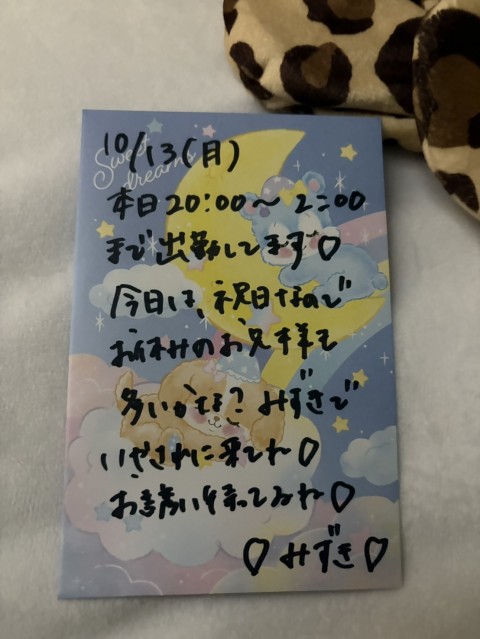 Sweet
dreams
10/13(月)
本日20:00〜2:00
まで出勤してます♡
今日は、祝日なので
お休みのお兄様も
多いかもな？みずきで
いやされに来てね♡
お誘い待ってるね♡
♡みずき♡